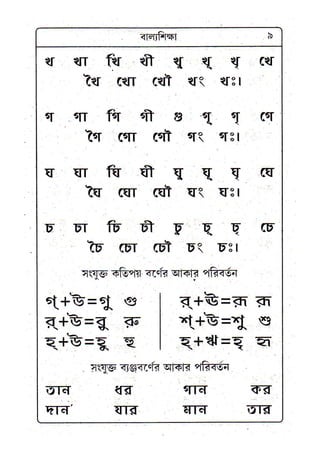 বাল্যশিক্ষা ৯
খ খা খি খী খু খূ খৃ খে
খৈ খো খৌ খং খঃ।
গ গা গি গী গু গূ গৃ গে
গৈ গো গৌ গং গঃ।
ঘ ঘা ঘি ঘী ঘু ঘূ ঘৃ ঘে
ঘৈ ঘো ঘৌ ঘং ঘঃ।
চ চা চি চী চু চূ চৃ চে
চৈ চো চৌ চং চঃ।
সংযুক্ত কতিপয় বর্ণের আকার পরিবর্তন
গ্+উ=গু গু র্+ঊ=রূ রূ
র্+উ=রু রু শ্+উ=শু শু
হ্+উ=হু হু হ্+ঋ=হৃ হৃ
সংযুক্ত ব্যঞ্জবর্ণের আকার পরিবর্তন
তান ধর গান কর
দান যার মান তার